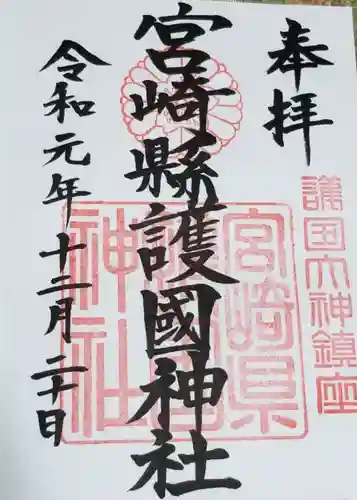 奉拝
護国大神鎮座
宮崎縣護國神社
宮崎県護国神社
令和元年十二月二十日